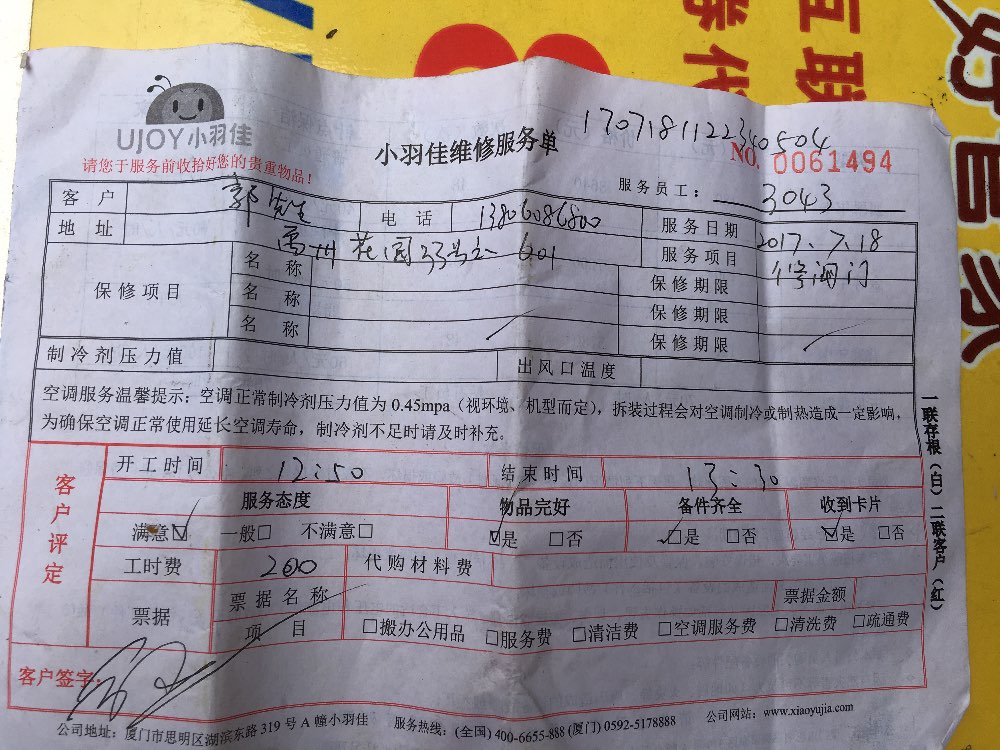 互联
好管家
UJOY小羽佳
请您于服务前收拾好您的贵重物品！
小羽佳维修服务单
1707181122340504
NO. 0061494
服务员工： 3043
客 户 郭先生 电 话 13806086800 服务日期 2017、7、18
地 址 禹州花园33号之一601 服务项目 修阀门
保修项目 名 称 保修期限
名 称 保修期限
名 称 保修期限
制冷剂压力值 出风口温度
空调服务温馨提示：空调正常制冷剂压力值为 0.45mpa（视环境、机型而定），拆装过程会对空调制冷或制热造成一定影响，
为确保空调正常使用延长空调寿命，制冷剂不足时请及时补充。
一联存根（白）二联客户（红）
客户评定
开工时间 12:50 结束时间 13:30
服务态度 物品完好 备件齐全 收到卡片
满意☑ 一般□ 不满意□ ☑是 □否 ☑是 □否 ☑是 □否
工时费 200 代购材料费
票据 票据名称 票据金额
项 目 □搬办公用品 □服务费 □清洁费 □空调服务费 □清洗费 □疏通费
客户签字：
公司地址：厦门市思明区湖滨东路 319 号 A 幢小羽佳 服务热线：(全国) 400-6655-888 (厦门) 0592-5178888 公司网站：www.xiaoyujia.com